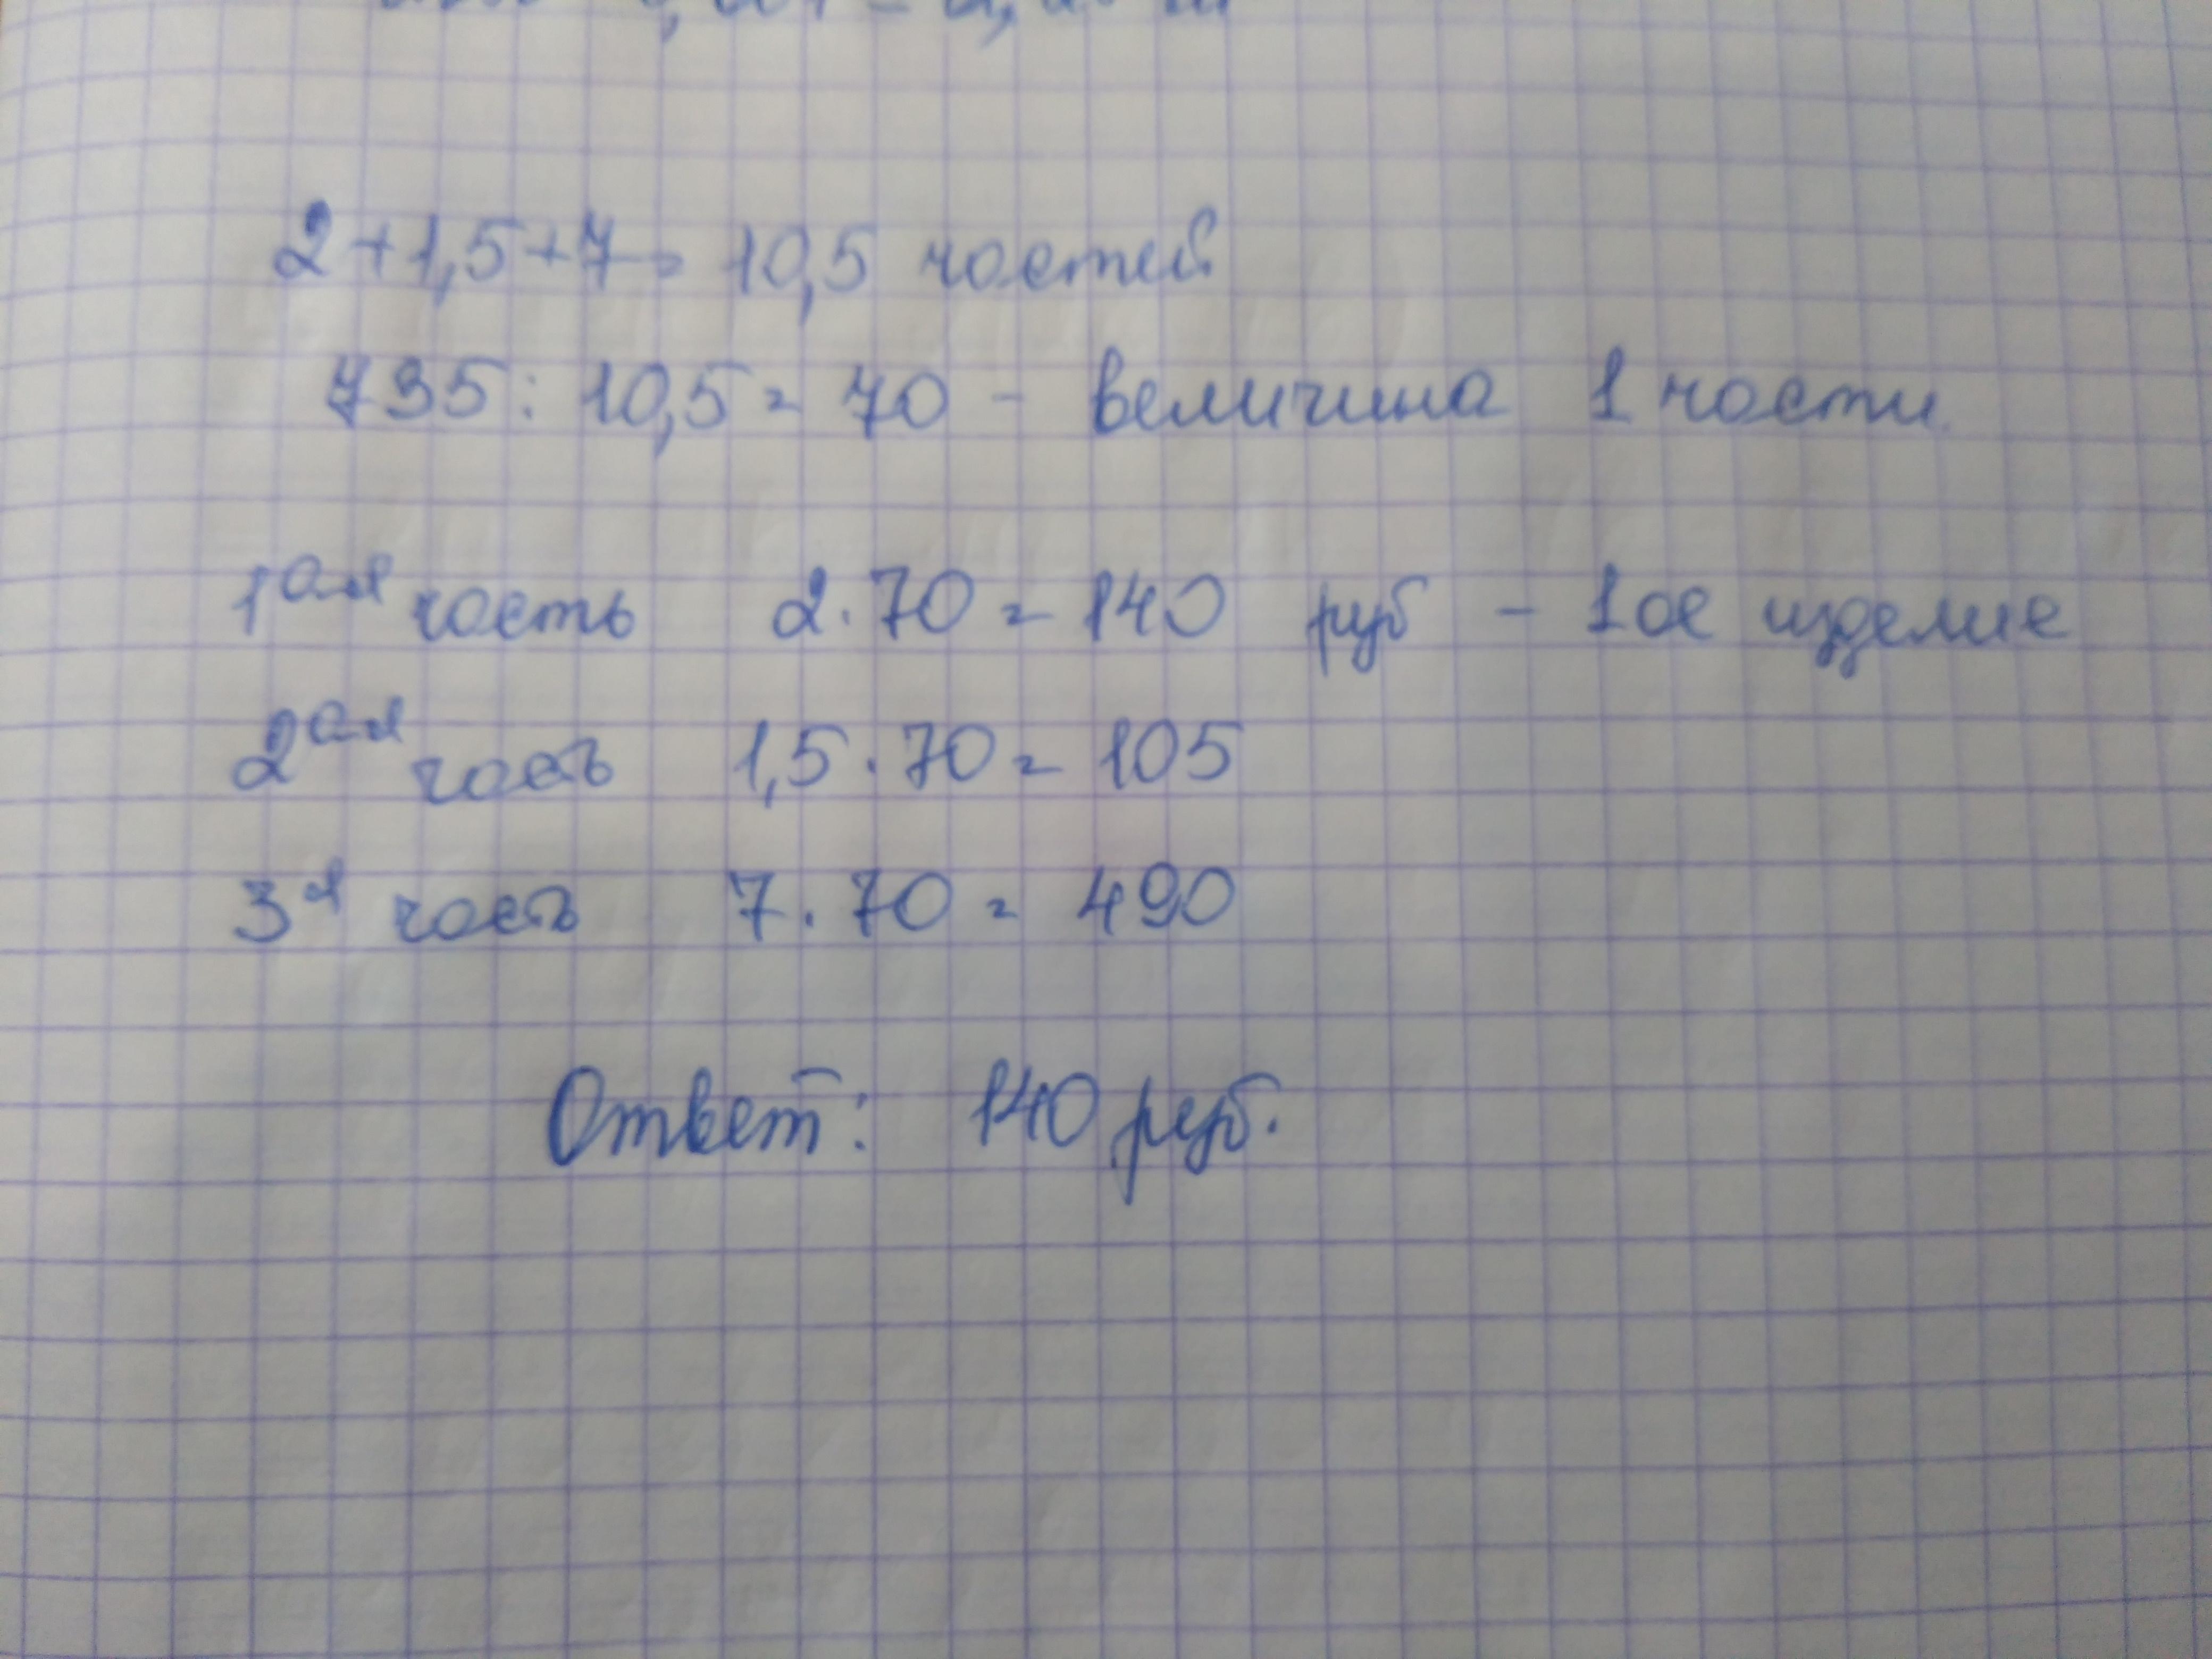 2+1,5+7= 10,5 частей
735: 10,5= 70 - величина 1 части.
1ая часть 2·70=140 руб - 1ое изделие
2ая часть 1,5·70=105
3я часть 7·70=490
Ответ: 140 руб.